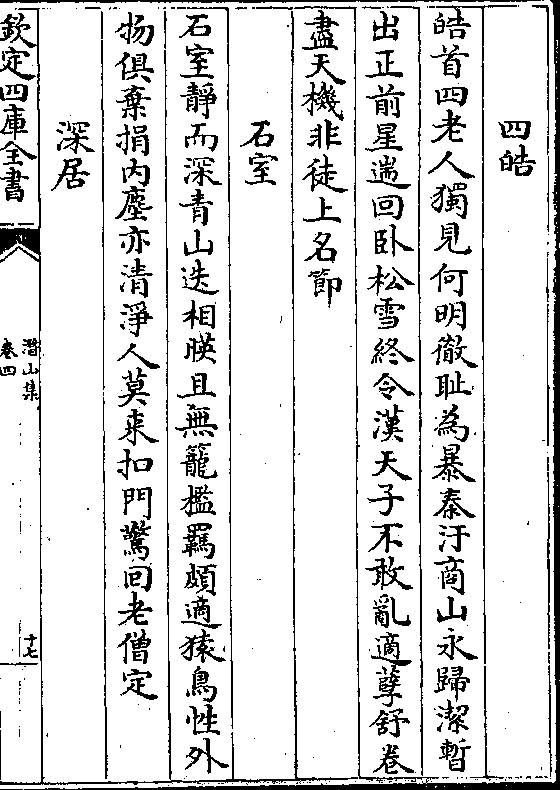 四皓
皓首四老人獨見何明徹恥為暴秦汙商山永歸潔暫
出正前星遄回卧松雪終令漢天子不敢亂適孽舒卷
盡天機非徒上名節
石室
石室靜而深青山迭相暎且無籠檻羈頗適猿鳥性外
物俱棄捐内塵亦清淨人莫来扣門驚回老僧定
深居
欽定四庫全書
潛山集
卷四
十七